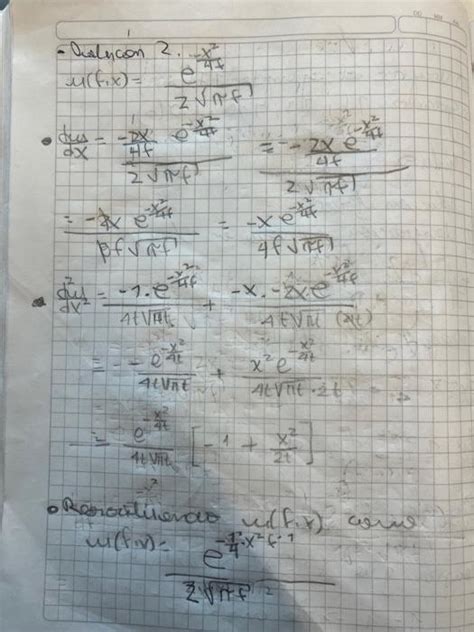 2.
u(t,x) = e^{-x²/4t} / 2√πt
• du/dx = -2x/4t e^{-x²/4t} / 2√πt = -2x e^{-x²/4t}/4t / 2√πt
= -2x e^{-x²/4t} / 8t√πt = -x e^{-x²/4t} / 4t√πt
• d²u/dx² = -1·e^{-x²/4t} / 4t√πt + -x·-2x·e^{-x²/4t} / 4t√πt (4t)
= -e^{-x²/4t} / 4t√πt + x² e^{-x²/4t} / 4t√πt·2t
= e^{-x²/4t} / 4t√πt [-1 + x²/2t]
• u(t,x) como
u(t,x) = e^{-1/4·x²t^{-1}} / 2√πt